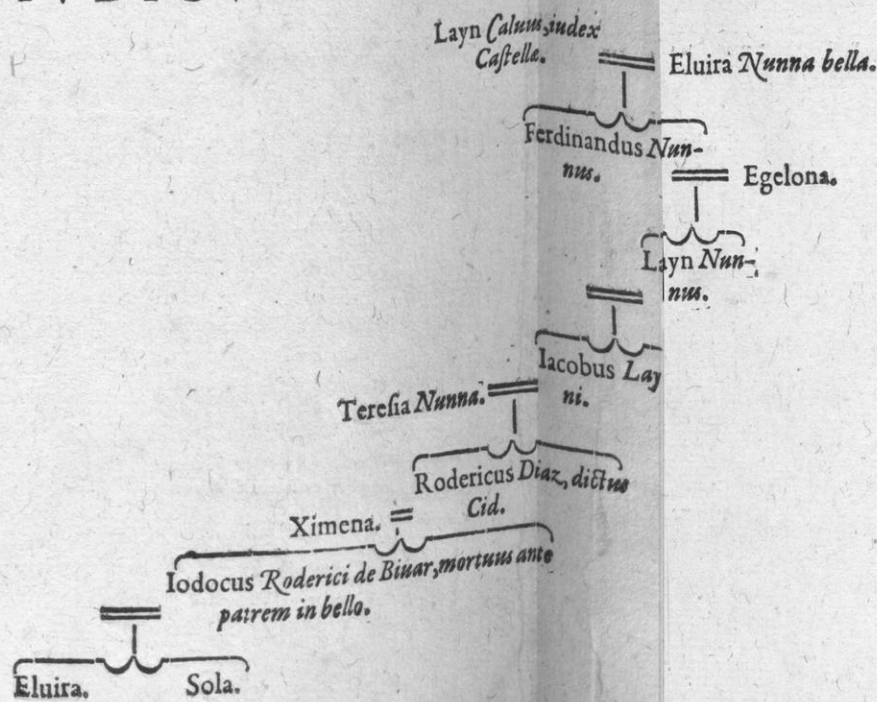 Layn Caluus, iudex
Castellæ.
Eluira Nunna bella.
Ferdinandus Nun-
nus.
Egelona.
Layn Nun-
nus.
Iacobus Lay
ni.
Teresia Nunna.
Rodericus Diaz, dictus
Cid.
Ximena.
Iodocus Roderici de Biuar, mortuus ante
patrem in bello.
Eluira. Sola.